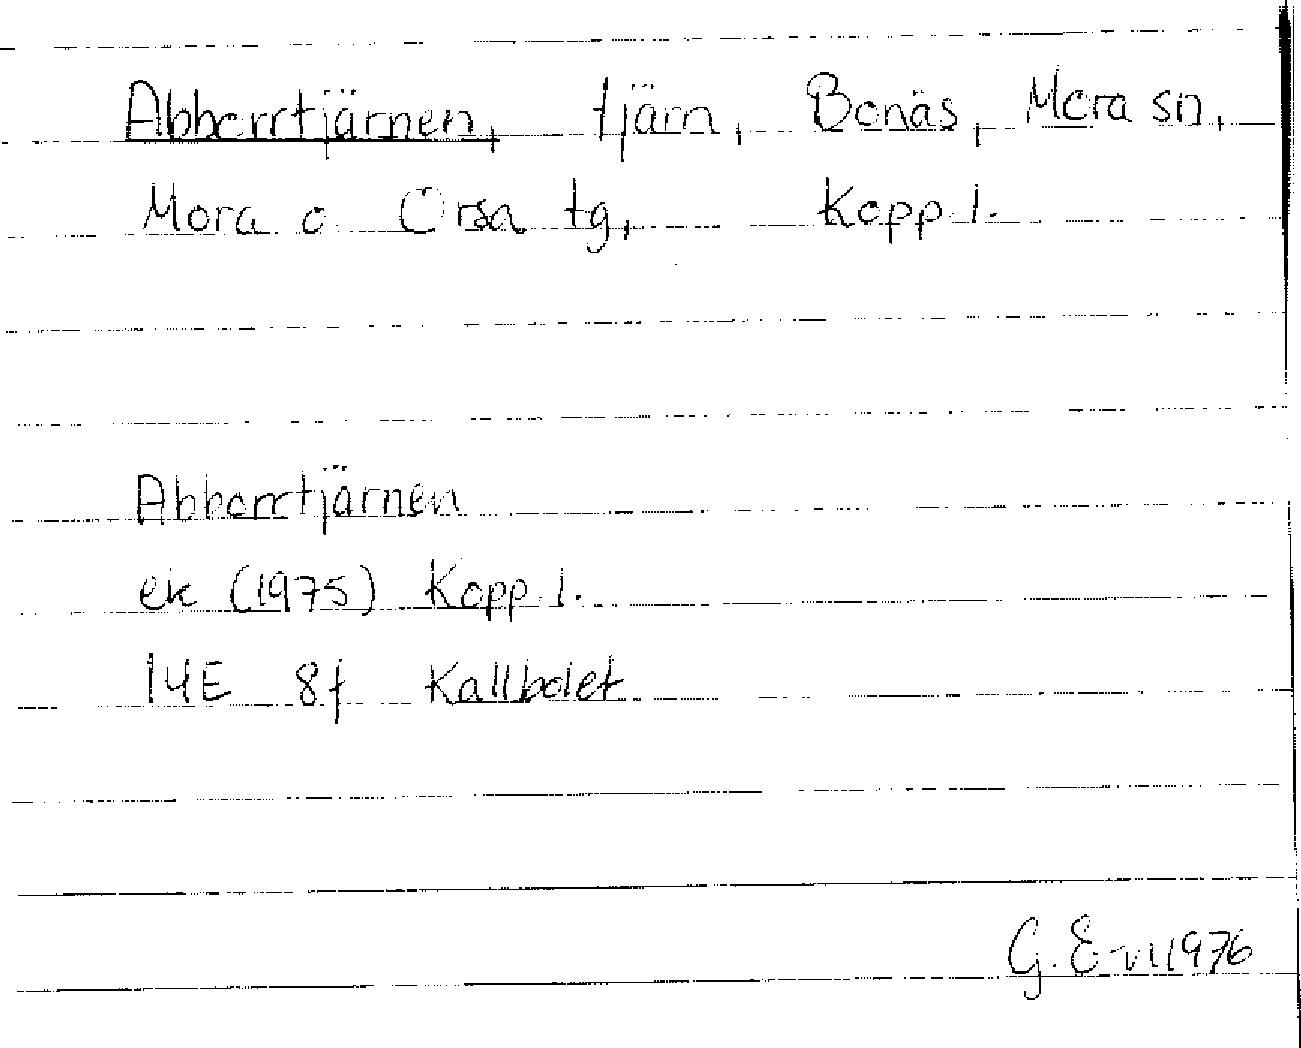 Abborrtjärnen, tjärn, Bonäs, Mora sn,
Mora o Orsa tg, Kopp l.
Abborrtjärnen
ek (1975) Kopp l.
14E 8f Kallbolet
G. E 1976